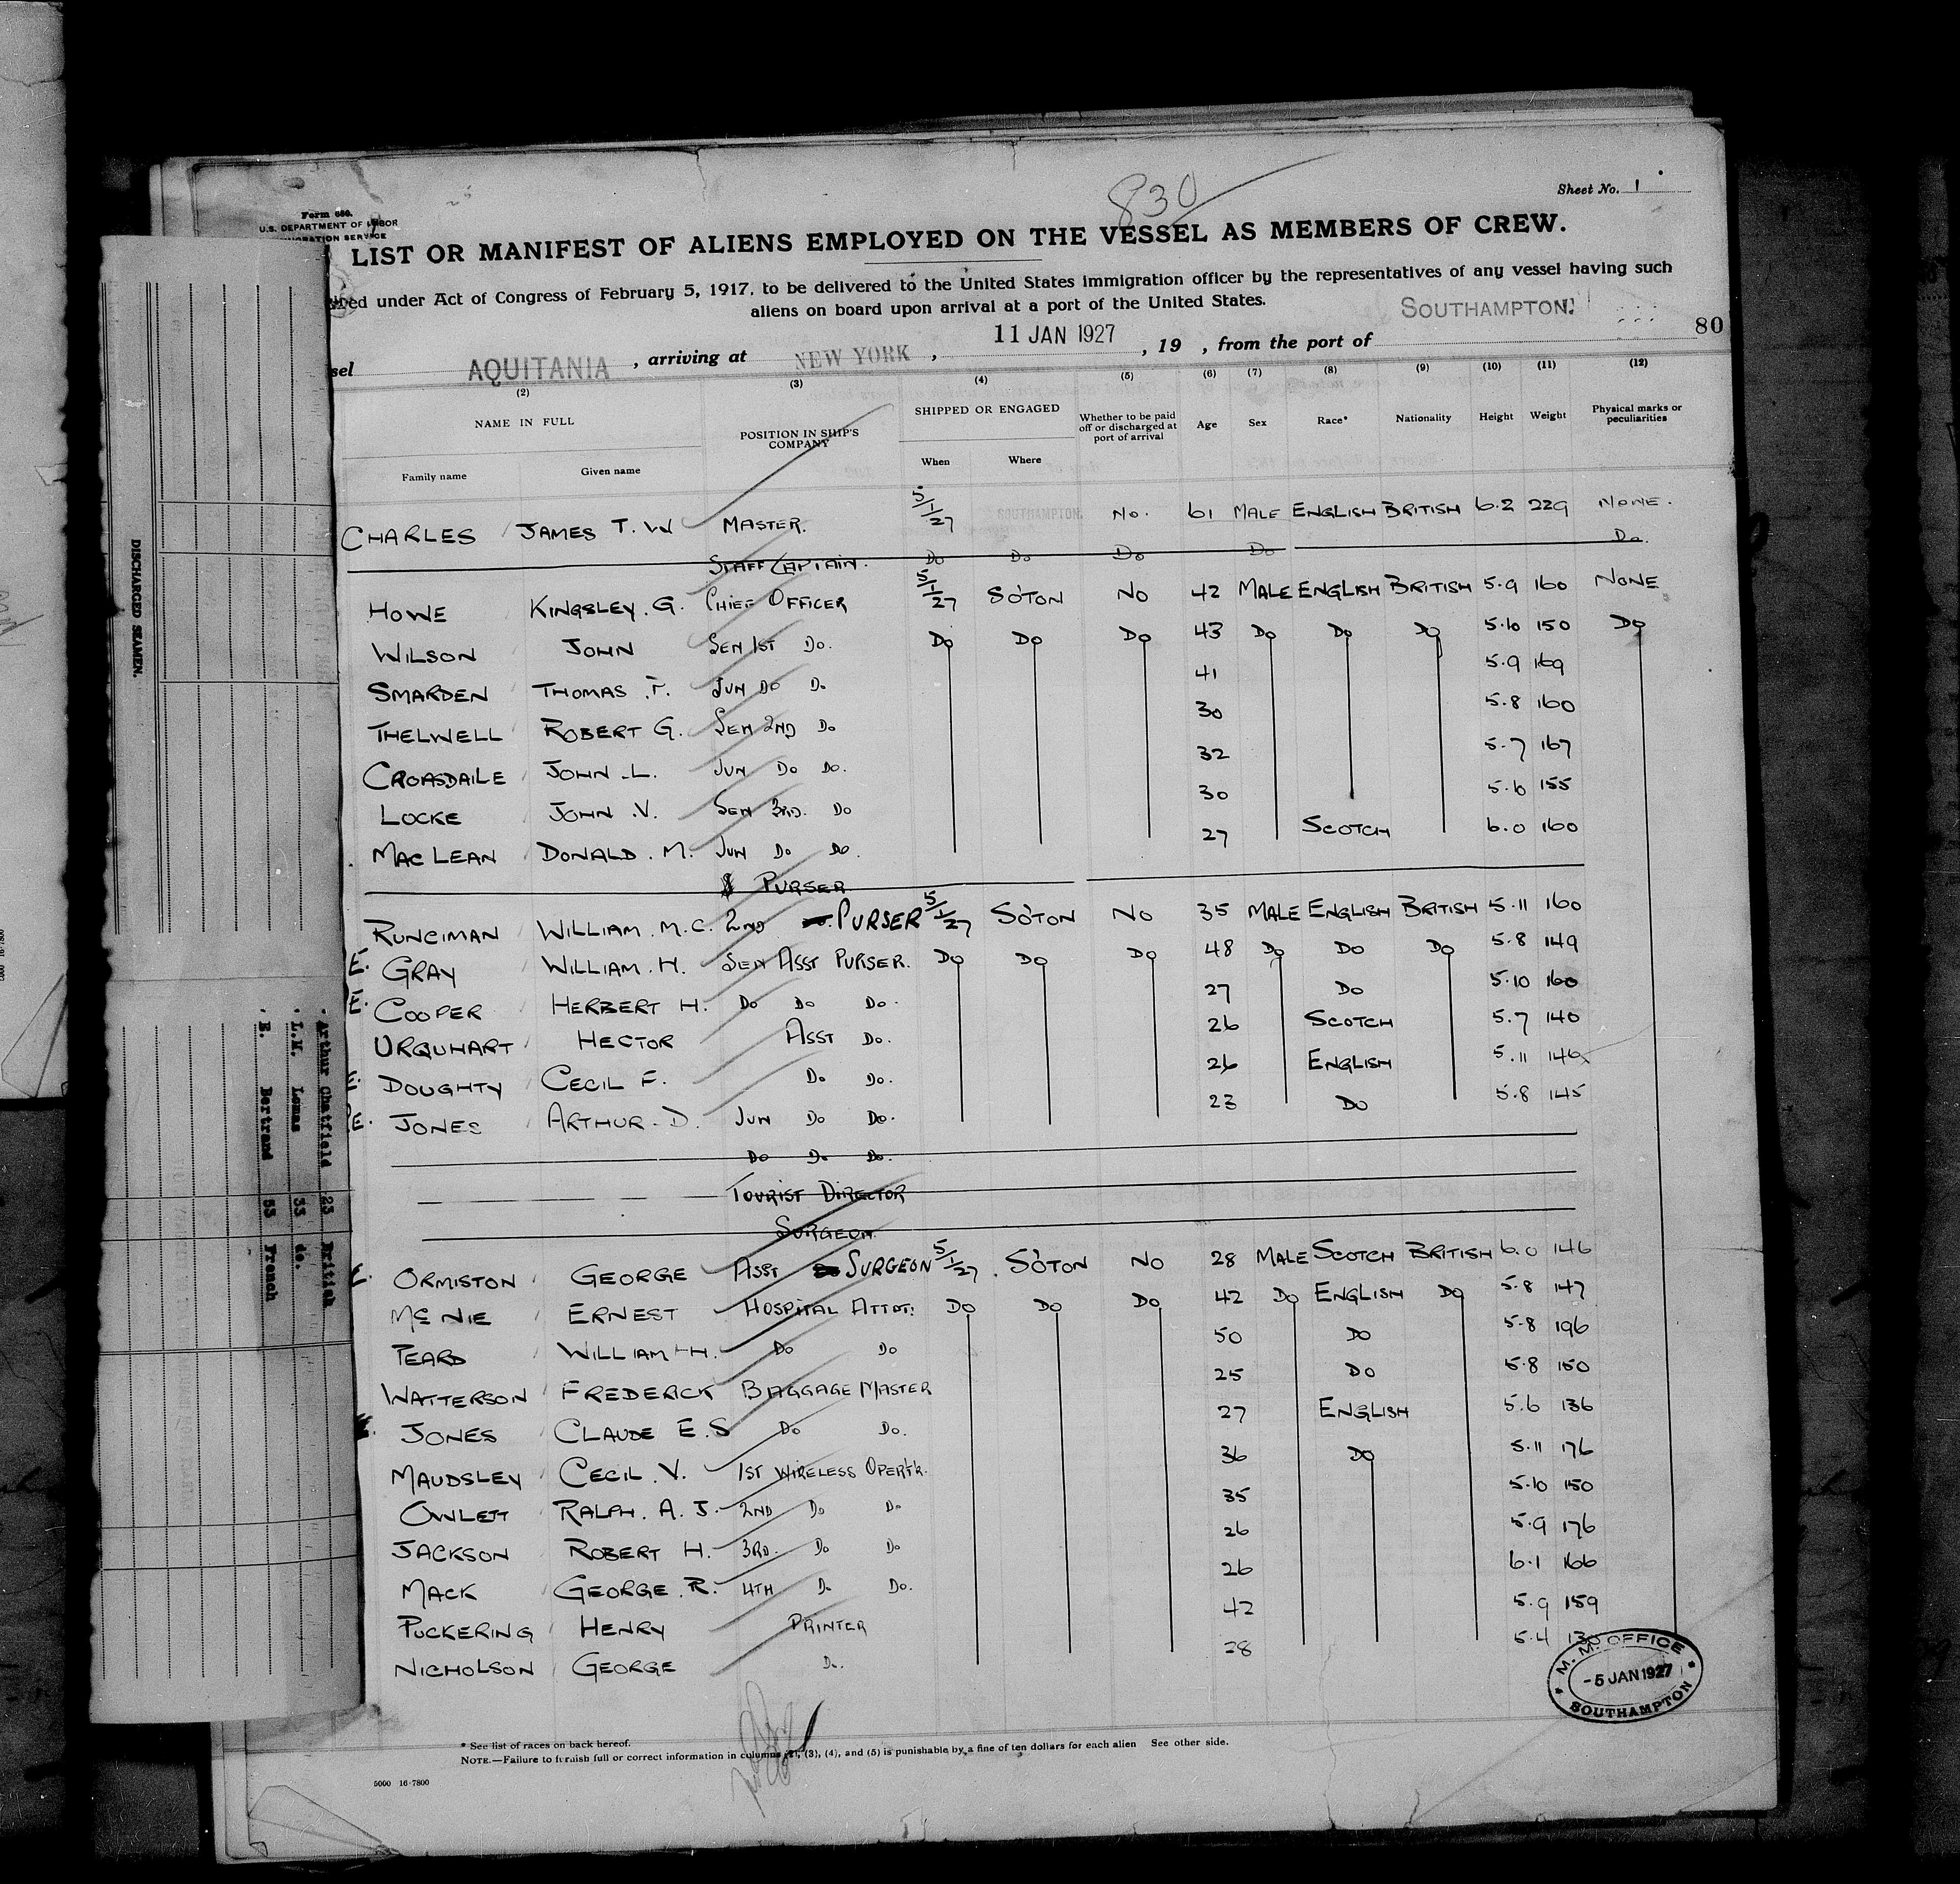 830
Sheet No. 1
Form 680.
U.S. DEPARTMENT OF LABOR
IMMIGRATION SERVICE
LIST OR MANIFEST OF ALIENS EMPLOYED ON THE VESSEL AS MEMBERS OF CREW.
under Act of Congress of February 5, 1917, to be delivered to the United States immigration officer by the representatives of any vessel having such
aliens on board upon arrival at a port of the United States.
sel AQUITANIA , arriving at NEW YORK , 11 JAN 1927 , 19 , from the port of SOUTHAMPTON. 80
(2) (3) (4) (5) (6) (7) (8) (9) (10) (11) (12)
NAME IN FULL POSITION IN SHIP'S COMPANY SHIPPED OR ENGAGED Whether to be paid off or discharged at port of arrival Age Sex Race* Nationality Height Weight Physical marks or peculiarities
Family name Given name When Where
CHARLES JAMES T. W MASTER. 5/1/27 SOUTHAMPTON. No. 61 MALE ENGLISH BRITISH 6.2 229 NONE.
STAFF CAPTAIN. Do Do Do Do Do.
HOWE KINGSLEY. G. CHIEF OFFICER 5/1/27 SO'TON NO 42 MALE ENGLISH BRITISH 5.9 160 NONE
WILSON JOHN SEN 1ST Do. Do Do Do 43 Do Do Do 5.6 150 Do
SMARDEN THOMAS .F. JUN Do Do 41 5.9 169
THELWELL ROBERT G. SEN 2ND Do 30 5.8 160
CROASDAILE JOHN .L. JUN Do Do. 32 5.7 167
LOCKE JOHN .V. SEN 3RD. Do 30 5.6 155
MACLEAN DONALD. M. JUN Do Do. 27 SCOTCH 6.0 160
PURSER
RUNCIMAN WILLIAM. M.C. 2ND PURSER 5/1/27 SO'TON NO 35 MALE ENGLISH BRITISH 5.11 160
E. GRAY WILLIAM. H. SEN ASST PURSER. Do Do Do 48 Do Do Do 5.8 149
E. COOPER HERBERT H. Do Do Do. 27 Do 5.10 160
URQUHART HECTOR ASST Do. 26 SCOTCH 5.7 140
E. DOUGHTY CECIL F. Do Do. 26 ENGLISH 5.11 146
E. JONES ARTHUR. D. JUN Do Do. 23 Do 5.8 145
Do Do Do.
TOURIST DIRECTOR
SURGEON.
E. ORMISTON GEORGE ASST SURGEON 5/1/27. SO'TON NO 28 MALE SCOTCH BRITISH 6.0 146
Mc NIE ERNEST HOSPITAL ATTDT. Do Do Do 42 Do ENGLISH Do 5.8 147
PEARD WILLIAM H. Do Do 50 Do 5.8 196
WATTERSON FREDERICK BAGGAGE MASTER 25 Do 5.8 150
JONES CLAUDE E.S Do Do. 27 ENGLISH 5.6 136
MAUDSLEY CECIL .V. 1ST WIRELESS OPERTR. 36 Do 5.11 176
OWLETT RALPH. A. J. 2ND Do Do 35 5.10 150
JACKSON ROBERT H. 3RD. Do Do 26 5.9 176
MACK GEORGE .R. 4TH Do Do. 26 6.1 166
PUCKERING HENRY PRINTER 42 5.9 159
NICHOLSON GEORGE Do. 28 5.4
M. M. OFFICE
-5 JAN 1927
SOUTHAMPTON
* See list of races on back hereof.
NOTE.—Failure to furnish full or correct information in columns (2), (3), (4), and (5) is punishable by a fine of ten dollars for each alien See other side.
5000 16-7800
DISCHARGED SEAMEN.
Arthur Chatfield 23 British
L.M. Lomas 33 do.
E. Bertrand 53 French